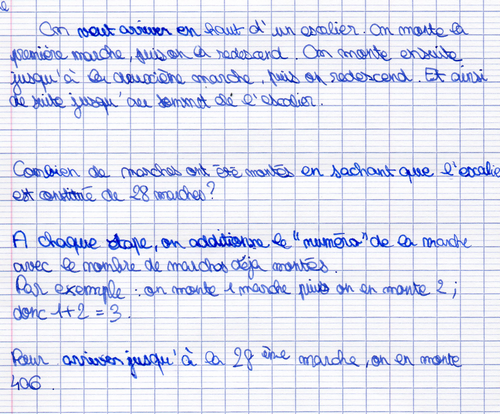 On veut arriver en haut d'un escalier. On monte la
première marche, puis on la redescend. On monte ensuite
jusqu'à la deuxième marche, puis on redescend. Et ainsi
de suite jusqu'au sommet de l'escalier.
Combien de marches ont été montés en sachant que l'escalie
est constitué de 28 marches?
A chaque étape, on additionne le "numéro" de la marche
avec le nombre de marches déja montés.
Par exemple : on monte 1 marche puis on en monte 2 ;
donc 1+2 = 3.
Pour arriver jusqu'à la 28 ème marche, on en monte
406.